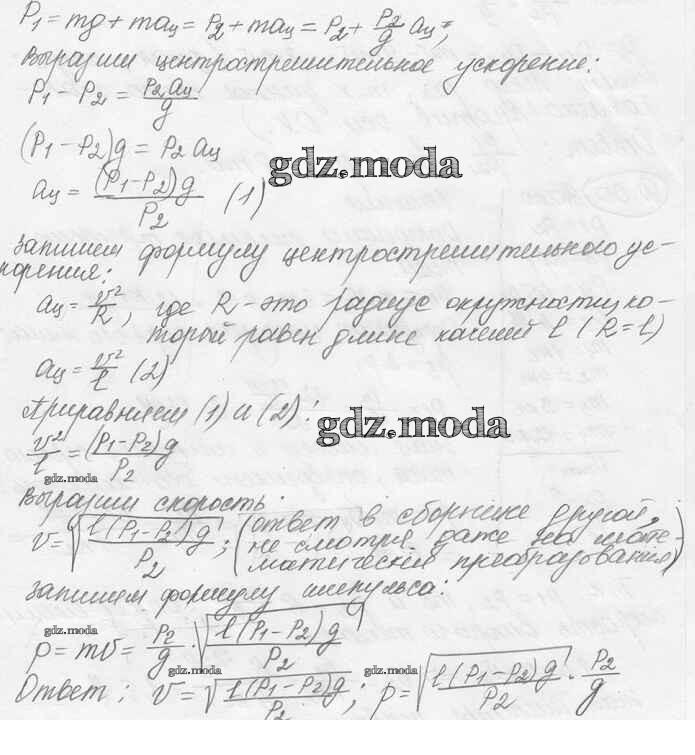 P₁ = mg + maц = P₂ + maц = P₂ + P₂/g aц;
Выразим центростремительное ускорение:
P₁ - P₂ = P₂aц/g
(P₁ - P₂)g = P₂aц
gdz.moda
aц = (P₁ - P₂)g/P₂ (1)
Запишем формулу центростремительного ус-
корения:
aц = v²/R, где R - это радиус окружности, ко-
торый равен длине качелей l (R = l)
aц = v²/l (2)
Приравняем (1) и (2):
gdz.moda
v²/l = (P₁ - P₂)g/P₂
gdz.moda
Выразим скорость:
v = √(l(P₁ - P₂)g/P₂); (ответ в сборнике другой,
не смотря даже на мате-
матические преобразования)
Запишем формулу импульса:
gdz.moda
p = mv = P₂/g · √(l(P₁ - P₂)g/P₂)
gdz.moda gdz.moda
Ответ: v = √(l(P₁ - P₂)g/P₂); p = √(l(P₁ - P₂)g/P₂) · P₂/g